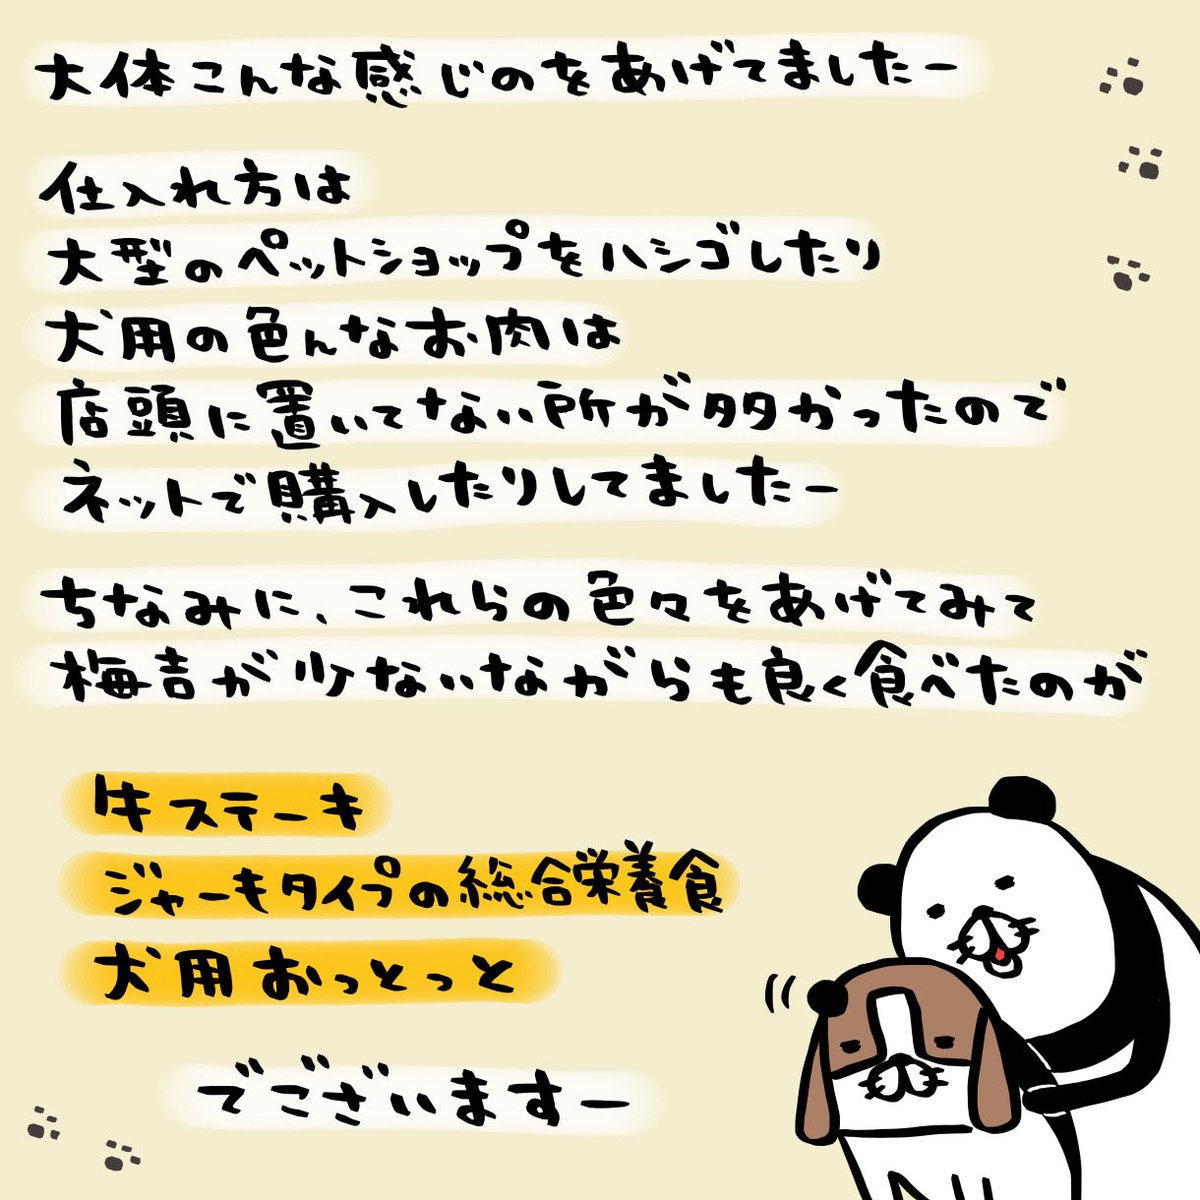 大体こんな感じのをあげてましたー
仕入れ方は
大型のペットショップをハシゴしたり
犬用の色んなお肉は
店頭に置いてない所が多かったので
ネットで購入したりしてましたー
ちなみに、これらの色々をあげてみて
梅吉が少ないながらも良く食べたのが
牛ステーキ
ジャーキータイプの総合栄養食
犬用おっとっと
でございますー